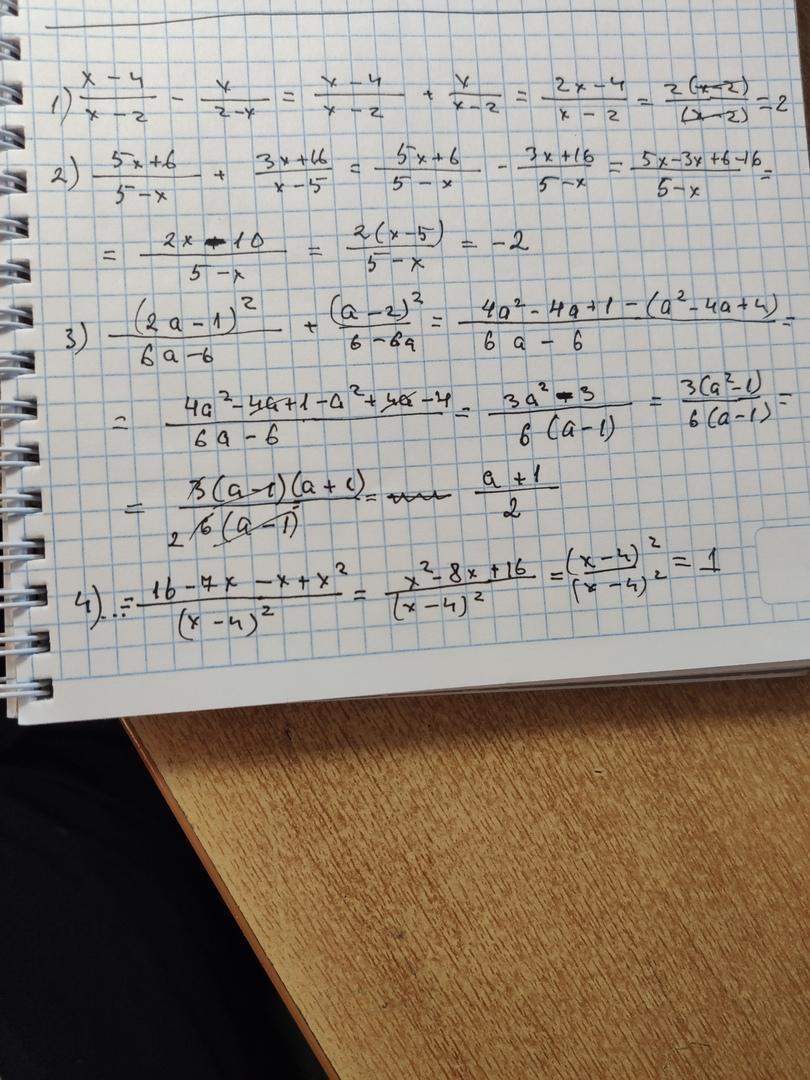 1) (x-4)/(x-2) - x/(2-x) = (x-4)/(x-2) + x/(x-2) = (2x-4)/(x-2) = 2(x-2)/(x-2) = 2
2) (5x+6)/(5-x) + (3x+16)/(x-5) = (5x+6)/(5-x) - (3x+16)/(5-x) = (5x-3x+6-16)/(5-x) =
= (2x-10)/(5-x) = 2(x-5)/(5-x) = -2
3) (2a-1)²/(6a-6) + (a-2)²/(6-6a) = (4a²-4a+1-(a²-4a+4))/(6a-6) =
= (4a²-4a+1-a²+4a-4)/(6a-6) = (3a²-3)/(6(a-1)) = 3(a²-1)/(6(a-1)) =
= 3(a-1)(a+1)/(2 6(a-1)) = (a+1)/2
4)...= (16-7x-x+x²)/(x-4)² = (x²-8x+16)/(x-4)² = (x-4)²/(x-4)² = 1